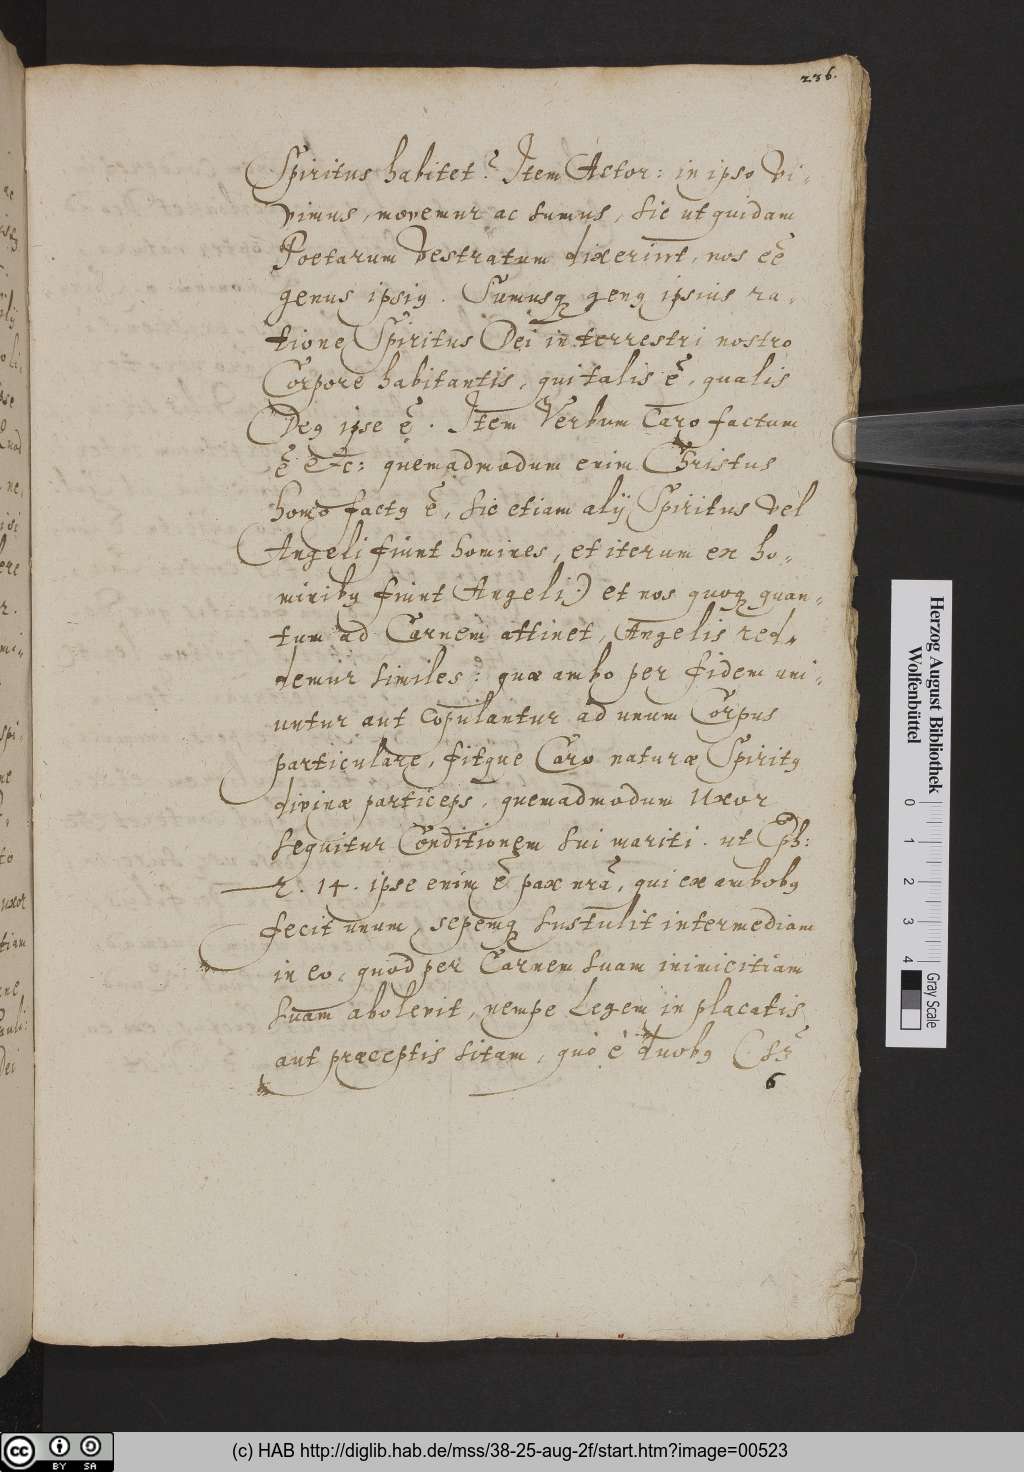 236.
Spiritus habitet? Item Actor: in ipso vi-
vimus, movemur ac sumus, sic ut quidam
Poetarum Vestratum dixerint, nos eē
genus ipsiꝰ. Sumusqꝫ genꝰ ipsius ra-
tione Spiritus Dei in terrestri nostro
Corpore habitantis, qui talis ē, qualis
Deꝰ ipse ē. Item Verbum Caro factum
ē &c: quemadmodum enim Christus
homo factꝰ ē, sic etiam alij Spiritus vel
Angeli fiunt homines, et iterum ex ho-
minibꝰ fiunt Angeli:) et nos quoqꝫ quan-
tum ad Carnem attinet, Angelis red-
demur similes: quæ ambo per fidem uni-
untur aut copulantur ad unum Corpus
particulare, fitque Caro naturæ Spiritꝰ
divinæ particeps, quemadmodum Uxor
sequitur Conditionem sui mariti. ut Eph:
2. 14. ipse enim ē pax nr̄a, qui ex ambobꝰ
fecit unum, sepemqꝫ sustulit intermediam
in eo, quod per Carnem suam inimicitiam
suam abolevit, nempe Legem in placatis
aut præceptis sitam, quo è duobꝰ
6
Herzog August Bibliothek
Wolfenbüttel
0 1 2 3 4
Gray Scale
cc BY SA
(c) HAB http://diglib.hab.de/mss/38-25-aug-2f/start.htm?image=00523